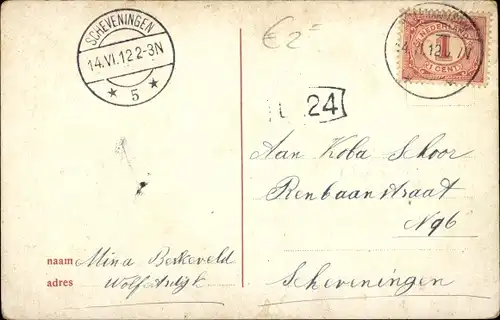 SCHEVENINGEN
14.VI.12 2-3N
5
€ 2=
NEDERLAND
1
CENT
24
Aan Koba Schoor
Renbaanstraat
N96
Scheveningen
naam Mina Berkeveld
adres